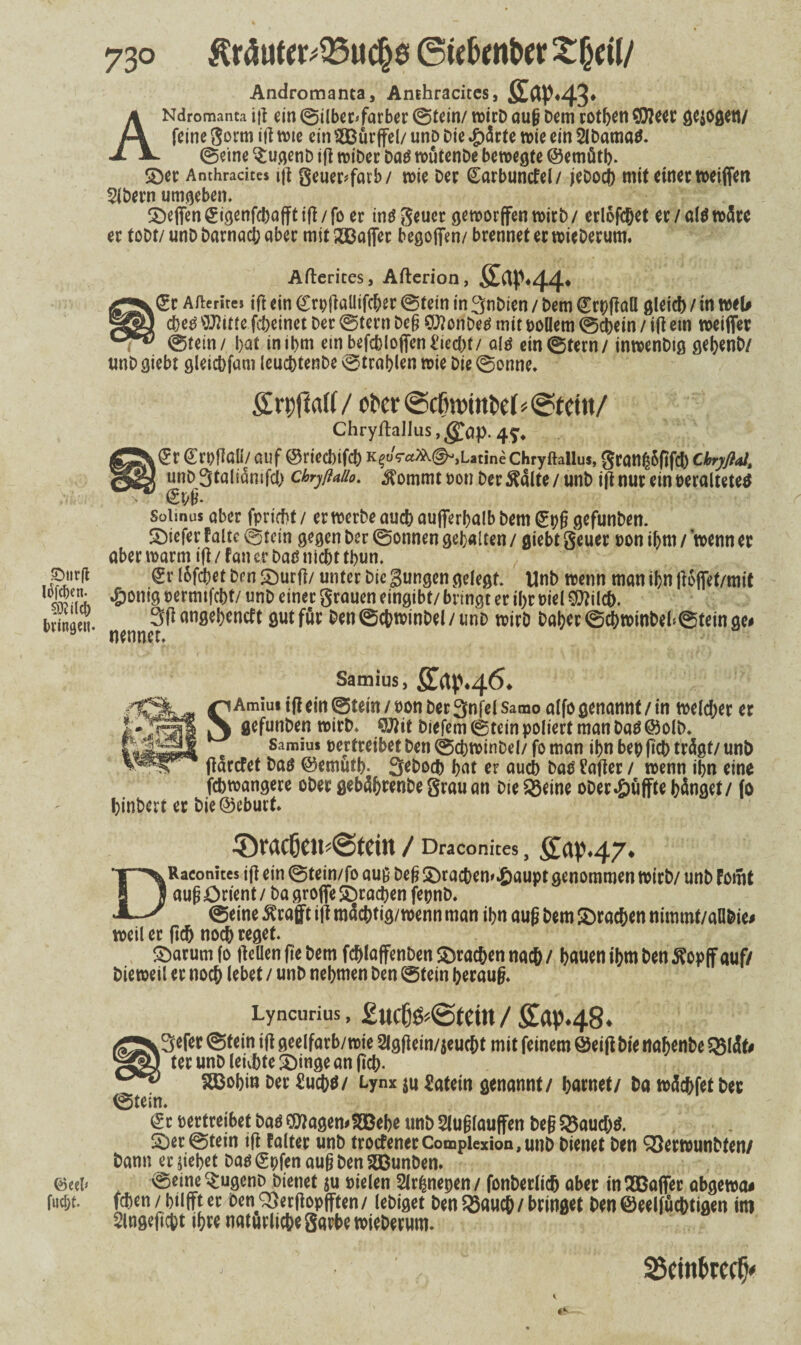 730 Kräuter-Buchs Siebender Theil/
Andromanta, Anthracites, Cap.43.
ANdromanta ist ein Silber-farber Stein/ wird auß dem rothen Meer gezogen/
seine Form ist wie ein Würffel/ und die Härte wie ein Adamas.
Seine Tugend ist wider das wütende bewegte Gemüth.
Der Anthracites ist Feuer-farb/ wie der Carbunckel/ jedoch mit einer weissen
Adern umgeben.
Dessen Eigenschafft ist/ so er ins Feuer geworffen wird/ erlöschet er/ als wäre
er todt/ und darnach aber mit Wasser begossen/ brennet er wiederum.
Asterites, Asterion, Cap.44.
Er Asterites ist ein Crystallischer Stein in Indien/ dem Crystall gleich/ in wel-
ches Mitte scheinet der Stern deß Mondes mit vollem Schein/ ist ein weisser
Stein/ hat in ihm ein beschlossen Liecht/ als ein Stern/ inwendig gehend/
und giebt gleichsam leuchtende Strahlen wie die Sonne.
Crystall/ oder Schwindel-Stein/
Chrystallus, Cap. 45.
Er Crystall/ auf Griechisch Κρύσταλλος, Latinè Chrystallus, Frantzösisch Chrystal,
und Italiänisch Chrystallo. Kommt von der Kälte/ und ist nur ein veraltetes
Eyß.
Solinus aber spricht/ er werde auch ausserhalb dem Eyß gefunden.
Dieser kalte Stein gegen der Sonnen gehalten/ giebt Feuer von ihm/ wenn er
aber warm ist/ kan er das nicht thun.
Durst
löschen.
Milch
bringen.
Er löschet den Durst/ unter die Zungen gelegt. Und wenn man ihn stösset/mit
Honig vermischt/ und einer Frauen eingibt/ bringt er ihr viel Milch.
Ist angehenckt gut für den Schwindel/ und wird daher Schwindel-Stein ge-
nennet.
Samius, Cap.46.
SAmius ist ein Stein/ von der Insel Samo also genannt/ in welcher er
gefunden wird. Mit diesem Stein poliert man das Gold.
Samius vertreibet den Schwindel/ so man ihn bey sich trägt/ und
stärcket das Gemüth. Jedoch hat er auch das Laster/ wenn ihn eine
schwangere oder gebährende Frau an die Beine oder Hüffte hänget/ so
hindert er die Geburt.
Drachen-Stein / Draconites, Cap.47.
DRaconites ist ein Stein/so auß deß Drachen-Haupt genommen wird/ und komt
auß Orient/ da grosse Drachen seynd.
Seine Krafft ist mächtig/wenn man ihn auß dem Drachen nimmt/alldie-
weil er sich noch reget.
Darum so stellen sie dem schlaffenden Drachen nach/ hauen ihm den Kopff auf/
dieweil er noch lebet/ und nehmen den Stein herauß.
Lyncurius, Luchs-Stein/ Cap.48.
Jeser Stein ist geelfarb/wie Agstein/zeucht mit seinem Geist die nahende Blät-
ter und leichte Dinge an sich.
Wohin der Luchs/ Lynx zu Latein genannt/ harnet/ da wächset der
Stein.
Er vertreibet das Magen-Wehe und Außlauffen deß Bauchs.
Der Stein ist kalter und trockener Complexion, und dienet den Verwundten/
dann er ziehet das Eysen auß den Wunden.
Geel-
sucht.
Seine Tugend dienet zu vielen Artzneyen/ sonderlich aber in Wasser abgewa-
schen/ hilfft er den Verstopfften/ lediget den Bauch/ bringet den Geelsüchtigen im
Angesicht ihre natürliche Farbe wiederum.
Beinbrech-